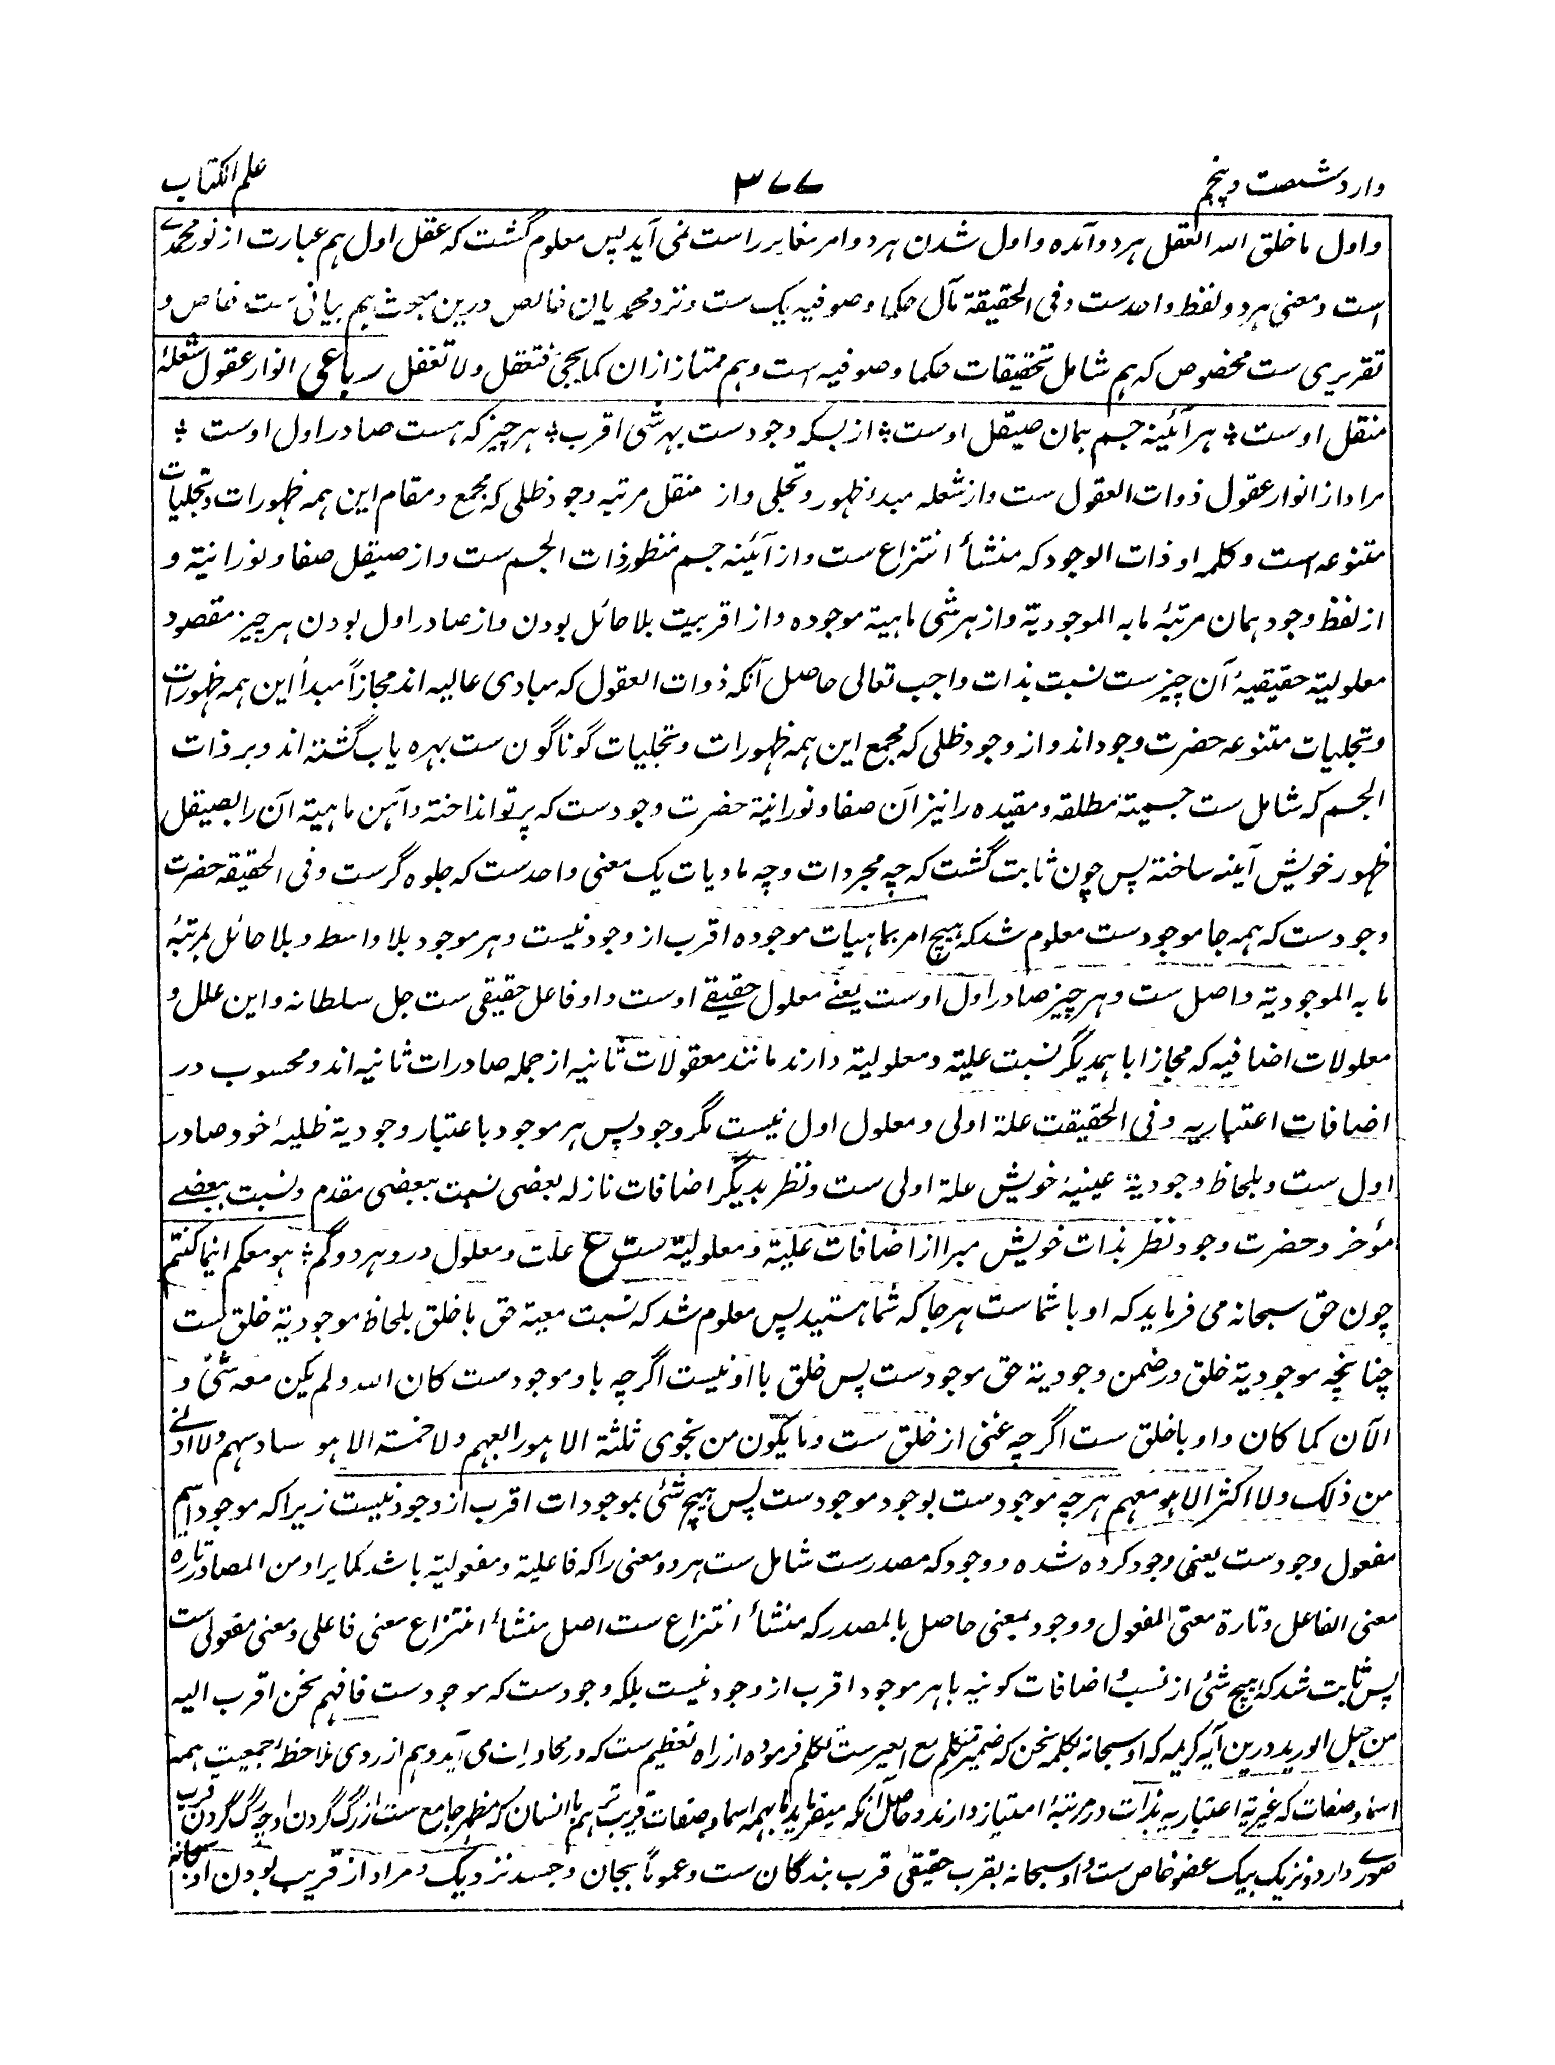 وارد شصت و پنجم ۳۷۷ علم الکتاب
و اول ما خلق الله العقل هر دو آمده و اول شدن هر دو امر مغایر راست نمی آید پس معلوم گشت که عقل اول هم عبارت از نور محمدے
است و معنی هر دو لفظ واحدست و فی الحقیقة مآل حکما و صوفیه یک ست و نزد محمدیان خالص درین مبحث هم بیانی ست خاص و
تقریری ست مخصوص که هم شامل تحقیقات حکما و صوفیه است و هم ممتاز ازان کما یجئ فتعقل و لا تغفل رباعی انوار عقول شعلهٔ
منقل اوست ؛ هر آئینه جسم بمان صیقل اوست ؛ از بسکه وجودست بهر شی اقرب ؛ هر چیز که هست صادر اول اوست ؛
مراد از انوار عقول ذوات العقول ست و از شعله مبدء ظهور و تجلی و از منقل مرتبه وجود ظلی که مجمع و مقام این همه ظهورات و تجلیات
متنوعه است و کلمه او ذات الوجود که منشأ انتزاع ست و از آئینه جسم منظور ذات الجسم ست و از صیقل صفا و نورانیة و
از لفظ وجود همان مرتبهٔ ما به الموجودیة و از هر شی ماهیة موجوده و از اقربیت بلا حائل بودن و از صادر اول بودن هر چیز مقصود
معلولیة حقیقیهٔ آن چیزست نسبت بذات واجب تعالی حاصل آنکه ذوات العقول که مبادی عالیه اند مجازاً مبدأ این همه ظهورات
و تجلیات متنوعه حضرت وجود اند و از وجود ظلی که مجمع این همه ظهورات و تجلیات گوناگون ست بهره یاب گشته اند و بر ذات
الجسم که شامل ست جسمیتهٔ مطلقه و مقیده را نیز آن صفا و نورانیة حضرت وجودست که پرتو انداخته و آهن ماهیة آن را بصیقل
ظهور خویش آینه ساخته پس چون ثابت گشت که چه مجردات و چه مادیات یک معنی واحدست که جلوه گرست و فی الحقیقه حضرت
وجودست که همه جا موجودست معلوم شد که هیچ امر بماهیات موجوده اقرب از وجود نیست و هر موجود بلا واسطه و بلا حائل بمرتبهٔ
ما به الموجودیة واصل ست و هر چیز صادر اول اوست یعنے معلول حقیقے اوست و او فاعل حقیقی ست جل سلطانه و این علل و
معلولات اضافیه که مجازا با همدیگر نسبت علیة و معلولیة دارند مانند معقولات ثانیه از جمله صادرات ثانیه اند و محسوب در
اضافات اعتباریه و فی الحقیقت علة اولی و معلول اول نیست مگر وجود پس هر موجود باعتبار وجودیة ظلیهٔ خود صادر
اول ست و بلحاظ وجودیة عینیهٔ خویش علة اولی ست و نظر بدیگر اضافات نازله بعضی نسبت ببعضی مقدم و نسبت ببعضے
مؤخر و حضرت وجود نظر بذات خویش مبرا از اضافات علیة و معلولیة ست ع علت و معلول درو هر دو گم ؛ هو معکم اینما کنتم
چون حق سبحانه می فرماید که او با شماست هر جا که شما هستید پس معلوم شد که نسبت معیة حق با خلق بلحاظ موجودیة خلق ست
چنانچه موجودیة خلق در ضمن وجودیة حق موجودست پس خلق با او نیست اگرچه باو موجودست کان الله و لم یکن معه شئ و
الآن کما کان و او با خلق ست اگرچه غنی از خلق ست و ما یکون من نجوی ثلثة الا هو رابعهم و لا خمسة الا هو سادسهم و لا ادنے
من ذلک و لا اکثر الا هو معهم هر چه موجودست بوجود موجودست پس هیچ شئی بموجودات اقرب از وجود نیست زیرا که موجود اسم
مفعول وجودست یعنی وجود کرده شده و وجود که مصدرست شامل ست هر دو معنی را که فاعلیة و مفعولیة باشد کما یراد من المصادر تاره
معنی الفاعل و تارة معنی المفعول و وجود بمعنی حاصل بالمصدر که منشأ انتزاع ست اصل منشأ انتزاع معنی فاعلی و معنی مفعولی ست
پس ثابت شد که هیچ شئ از نسب و اضافات کونیه با هر موجود اقرب از وجود نیست بلکه وجودست که موجودست فافهم نحن اقرب الیه
من حبل الورید درین آیه کریمه که او سبحانه بکلمه نحن که ضمیر متکلم مع الغیرست تکلم فرموده از راه تعظیم ست که در محاورات می آید و هم از روی ملاحظهٔ جمعیت همه
اسما و صفات که غیریة اعتباریه بذات در مرتبهٔ امتیاز دارند و حاصل آنکه میفرماید ما بهمه اسما و صفات قریب تریم بانسان که مظهر جامع ست از رگ گردن او چه رگ گردن قرب
صورے دارد و نزدیک بیک عضو خاص ست و او سبحانه بقرب حقیقی قرب بندگان ست و عموماً بجان و جسد نزدیک و مراد از قریب بودن او سبحانه